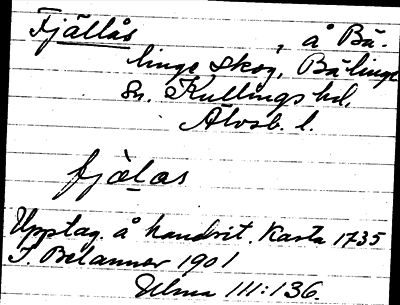 Fjällås, å Bä-
linge skog, Bälinge
sn. Kullings hd.
Älvsb. l.
fjälas
Upptag. å handrit. Karta 1735
1901
III:136